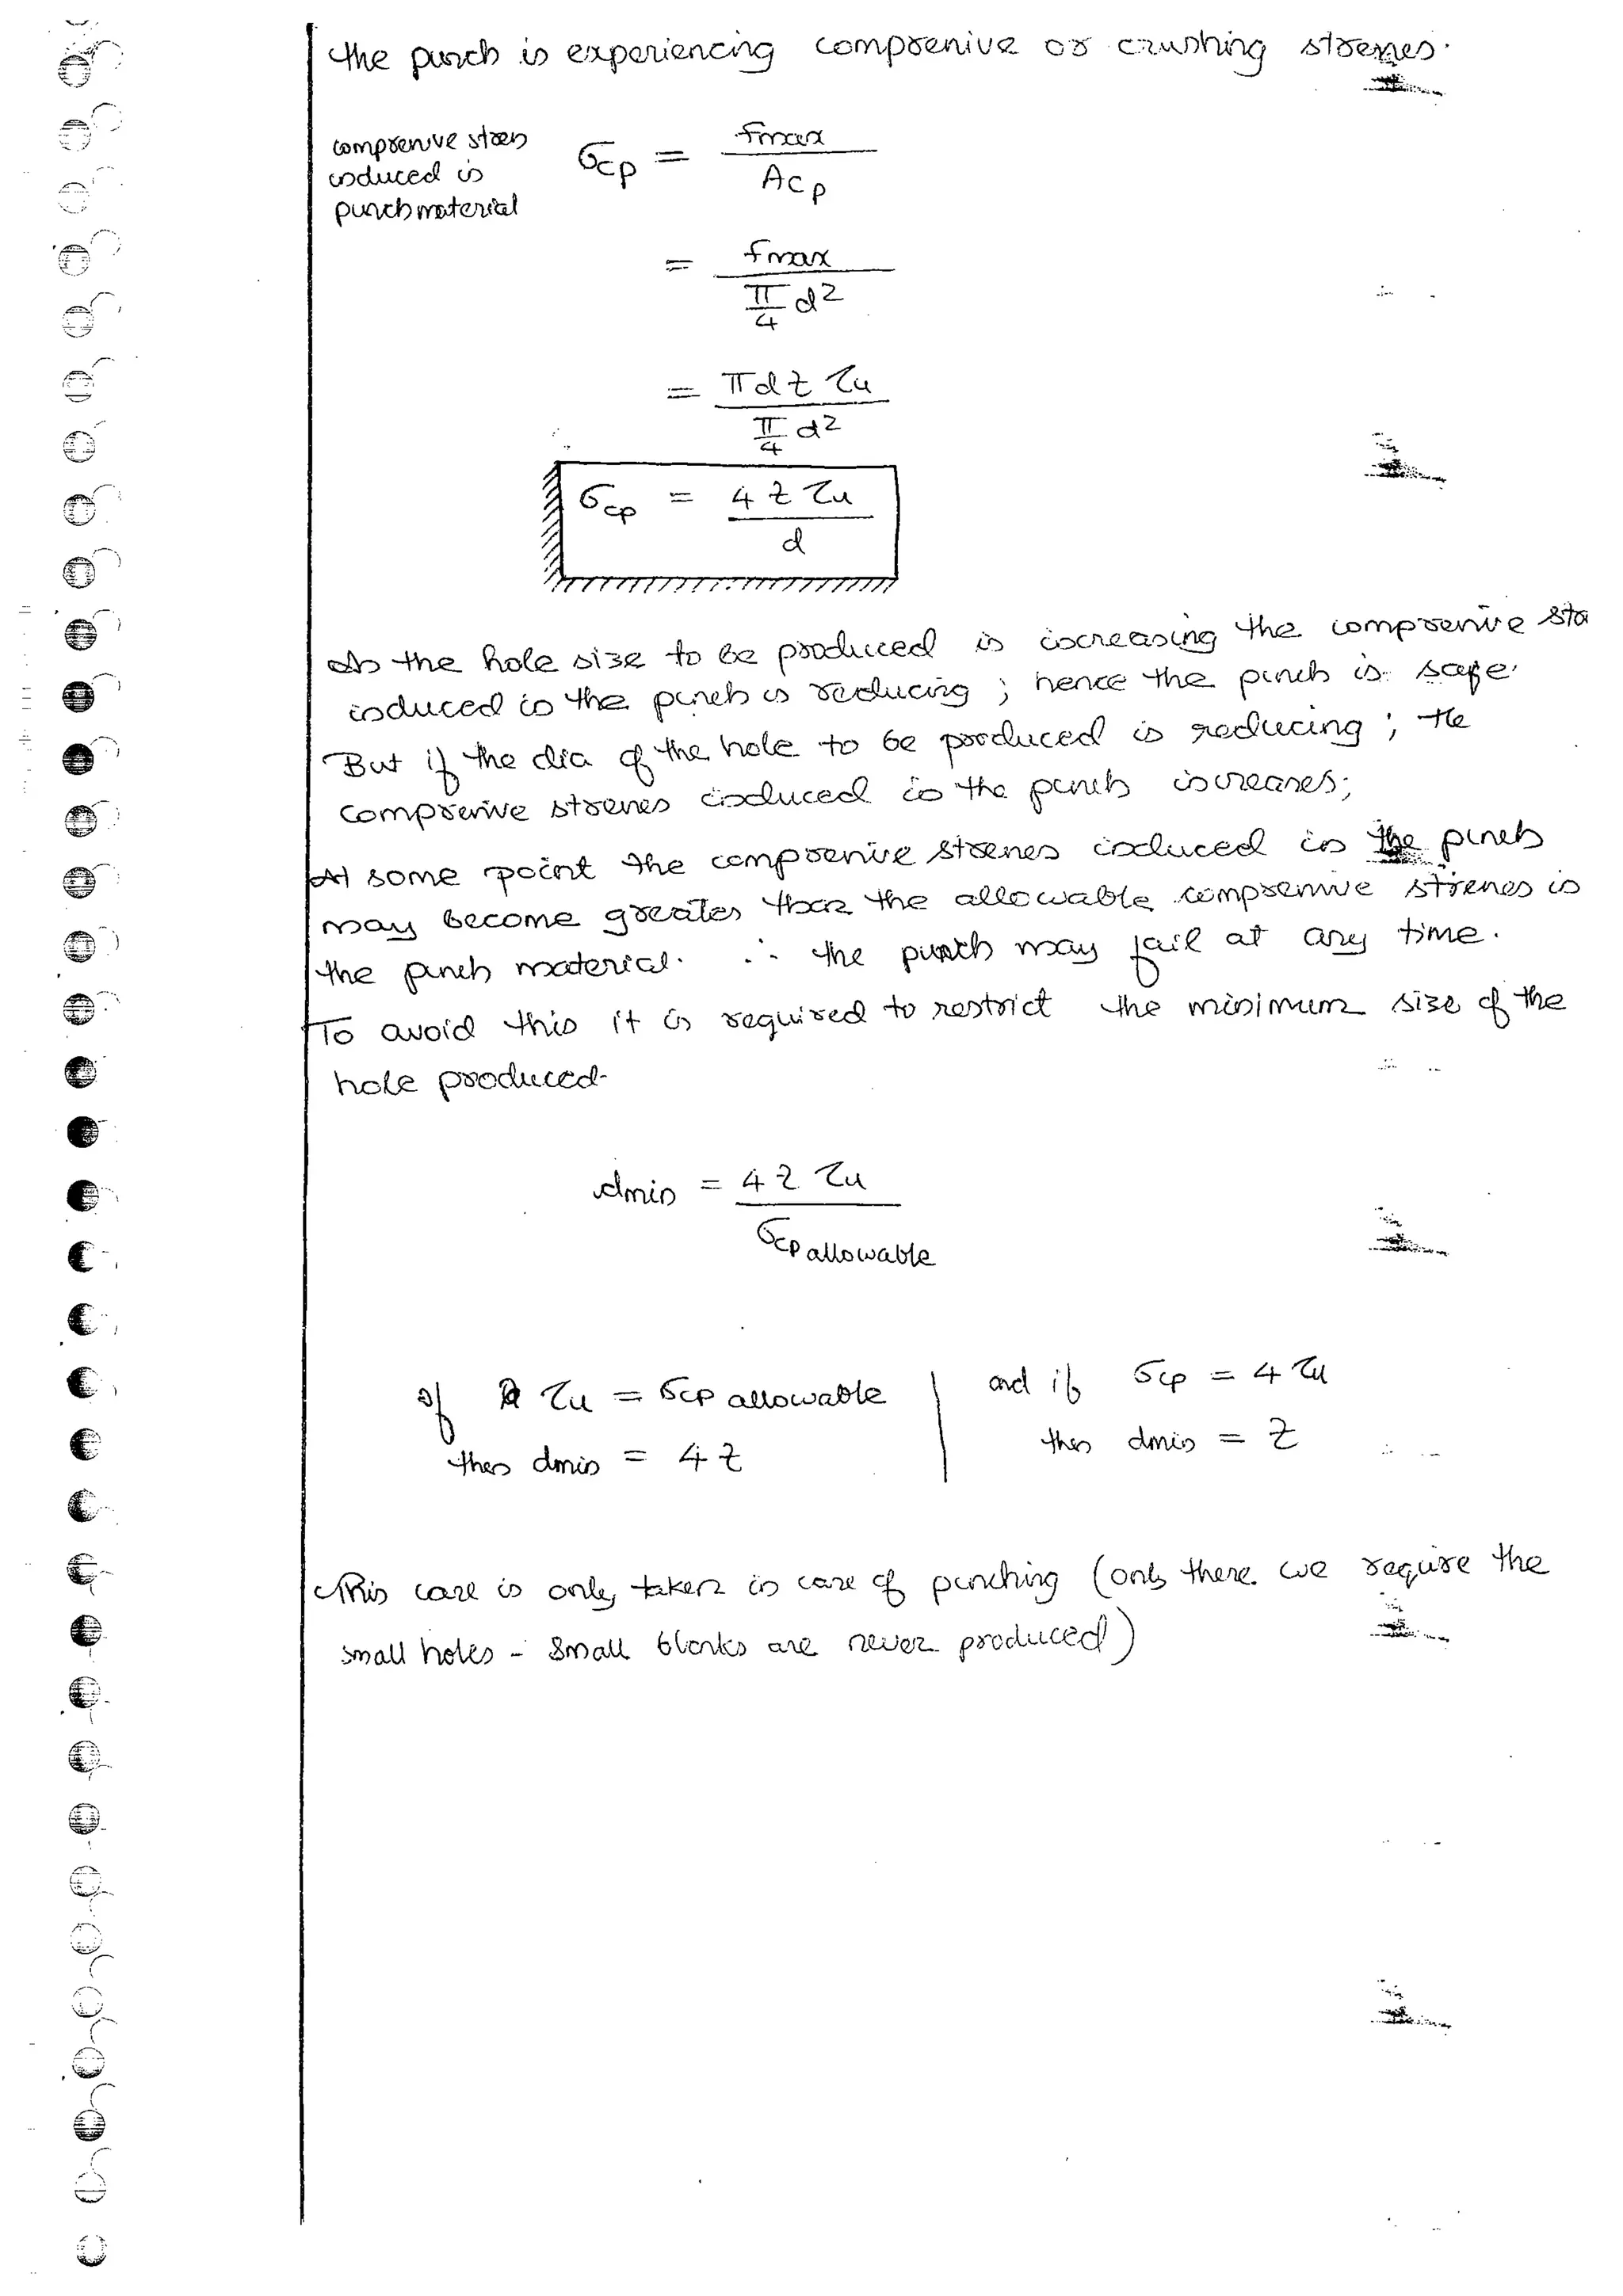 the punch is experiencing compressive or crushing stresses.
compressive stress
induced in
punch material
σcp = Fmax / Acp
= Fmax / (π/4 d²)
= πdt τu / (π/4 d²)
σcp = 4 t τu / d
As the hole size to be produced is increasing the compressive st
induced in the punch is reducing ; hence the punch is safe.
But if the dia of the hole to be produced is reducing ; the
compressive stresses induced in the punch increases;
At some point the compressive stresses induced in the punch
may become greater than the allowable compressive stresses in
the punch material. ∴ the punch may fail at any time.
To avoid this it is required to restrict the minimum size of the
hole produced.
dmin = 4 t τu / σcp allowable
If τu = σcp allowable | and if σcp = 4 τu
then dmin = 4 t | then dmin = t
This case is only taken in case of punching (only there we require the
small holes - small blanks are never produced)